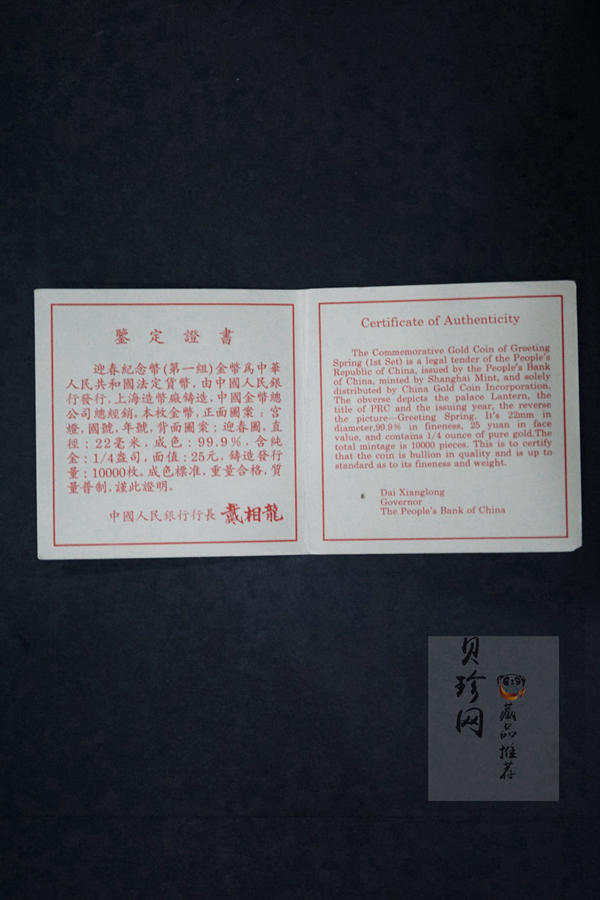 鑒定證書
迎春紀念幣(第一組)金幣為中華
人民共和國法定貨幣,由中國人民銀
行發行,上海造幣廠鑄造,中國金幣總
公司總經銷.本枚金幣,正面圖案:宮
燈,國號,年號,背面圖案:迎春圖,直
徑:22毫米,成色:99.9%,含純
金:1/4盎司,面值:25元,鑄造發行
量:10000枚.成色標准,重量合格,質
量普制,謹此證明。
中國人民銀行行長 戴相龍
Certificate of Authenticity
The Commemorative Gold Coin of Greeting
Spring (1st Set) is a legal tender of the People's
Republic of China, issued by the People's Bank
of China, minted by Shanghai Mint, and solely
distributed by China Gold Coin Incorporation.
The obverse depicts the palace Lantern, the
title of PRC and the issuing year, the reverse
the picture—Greeting Spring. It's 22mm in
diameter,99.9% in fineness, 25 yuan in face
value, and contains 1/4 ounce of pure gold.The
total mintage is 10000 pieces. This is to certify
that the coin is bullion in quality and is up to
standard as to its fineness and weight.
Dai Xianglong
Governor
The People's Bank of China
贝珍网
藏品推荐